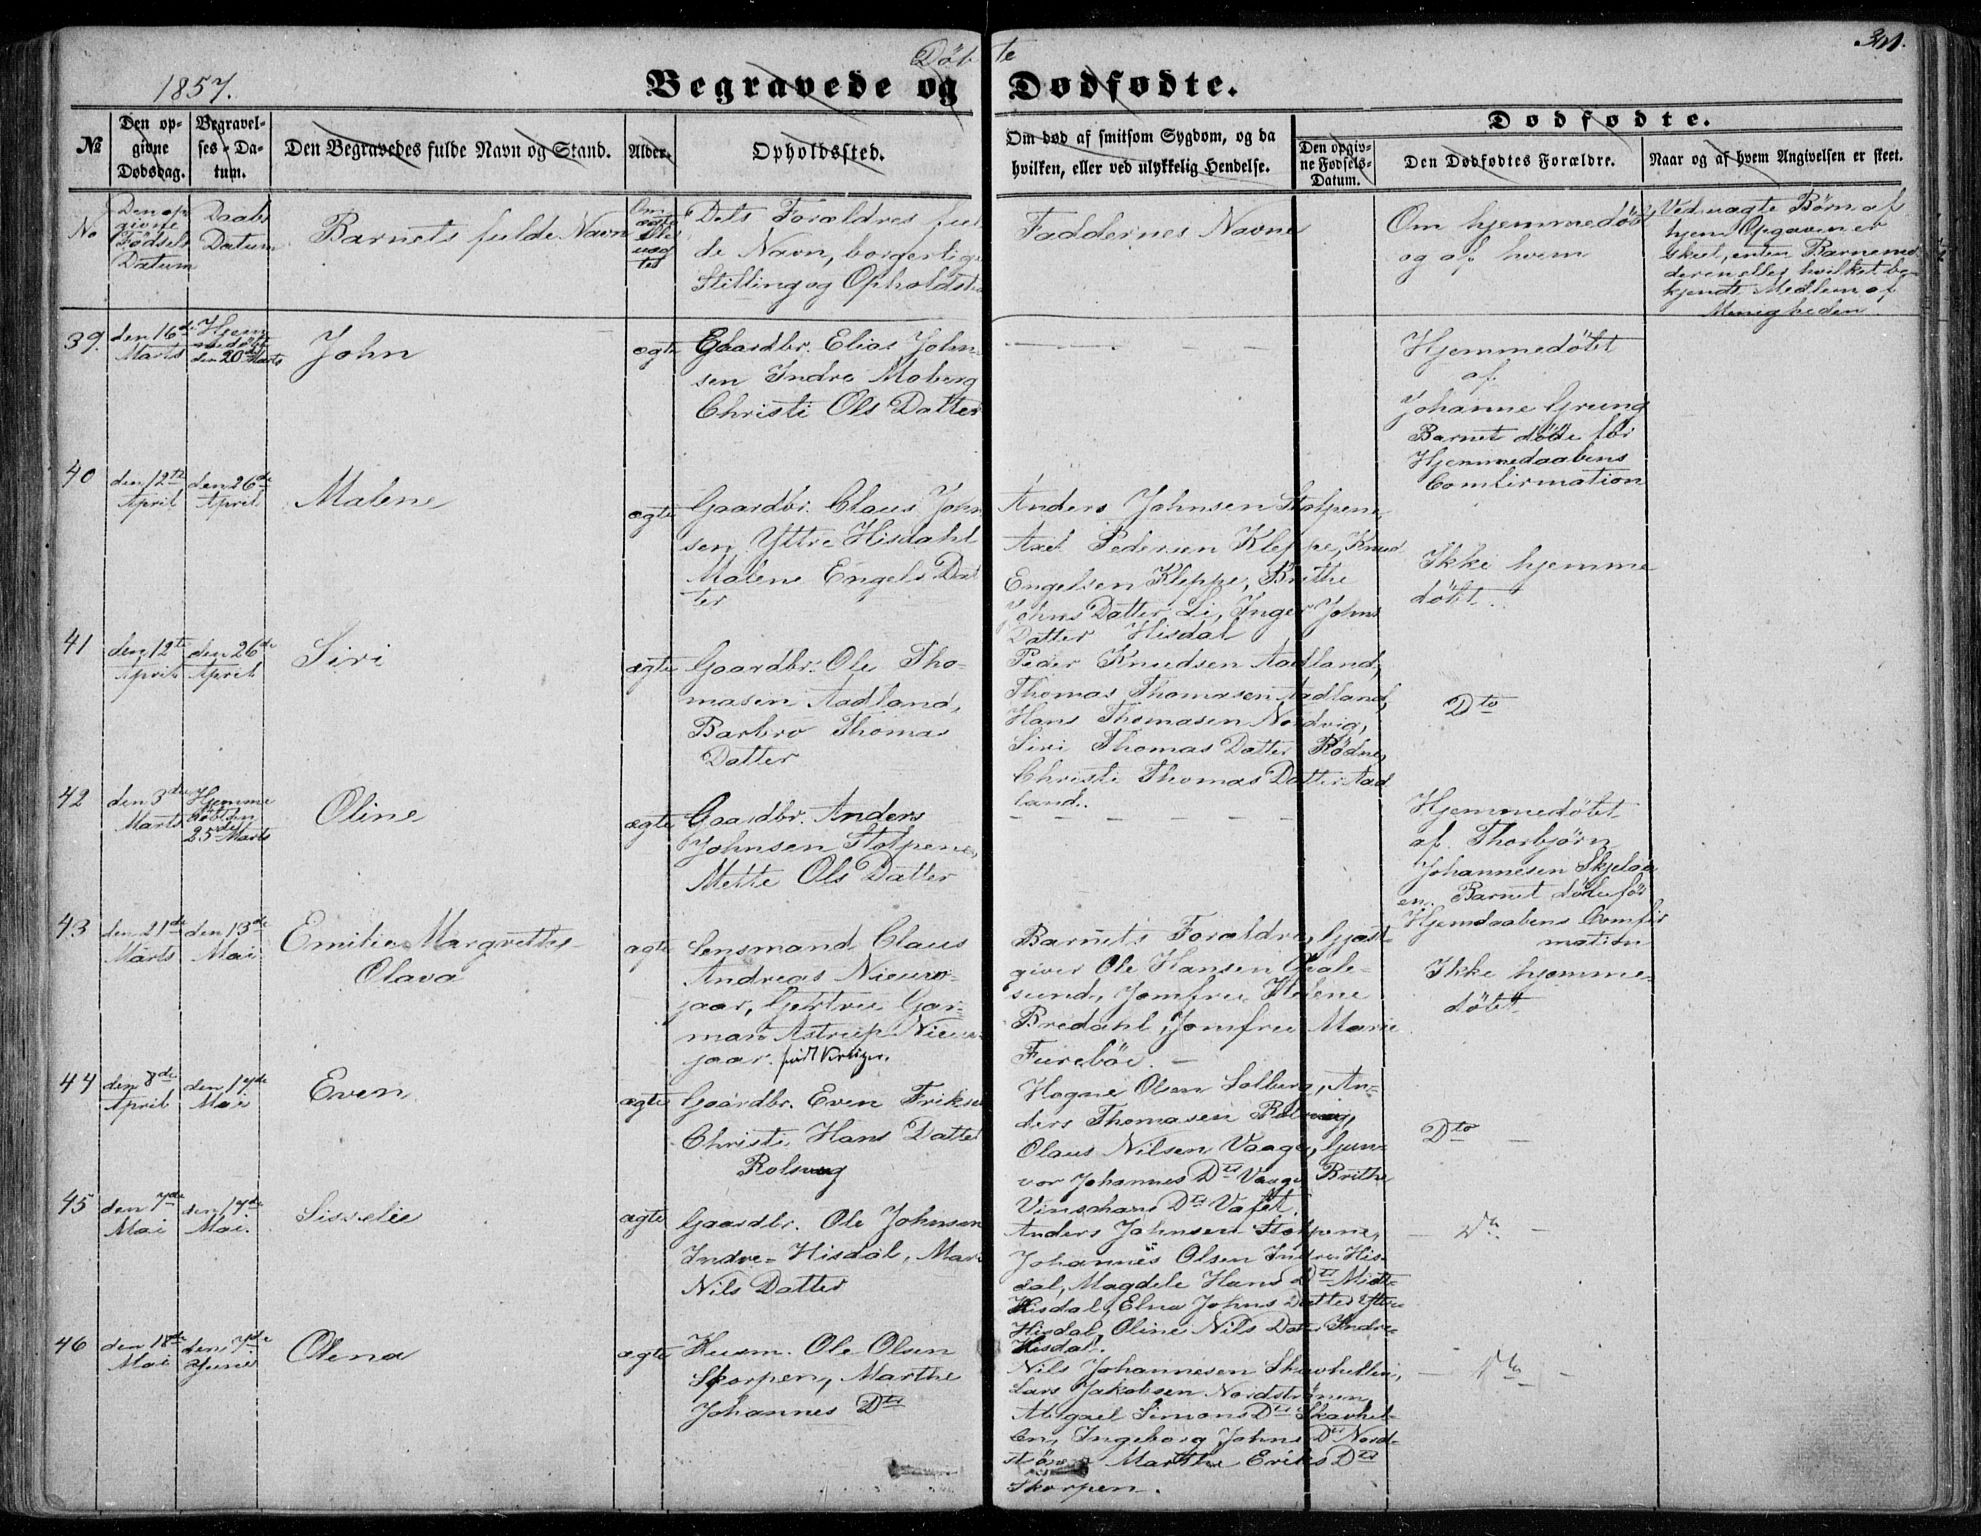 Døbte
341.
1857.
Begravede og Dødfødte.
Dødfødte.
No
Den opgivne Dødsdag.
Begravelses-Datum.
Den Begravedes fulde Navn og Stand.
Alder.
Opholdssted.
Om død af smitsom Sygdom, og da
hvilken, eller ved ulykkelig Hendelse.
Den opgivne Fødsels-Datum.
Den Dødfødtes Forældre.
Naar og af hvem Angivelsen er skeet.
No
Den op
givne
Fødsels
Datum
Daabs
Datum
Barnets fulde Navn
Om
ægte
eller
uæg
te
Dets Forældres ful
de Navn, borgerlige
Stilling og Opholdsted
Faddernes Navne
Om hjemmedøbt
og af hvem
Ved uægte Børn af
hvem Opgaven er
skeet, enten Barnemod
deren eller hvilket be-
kjendt Medlem af
Menigheden.
39.
den 16de
Marts
Hjem
medøbt
den 20de Marts
John
ægte
Gaardbr. Elias John-
sen Indre Moberg
Christi Ols Datter
Hjemmedøbt
af
Johanne Grung
Barnet døde før
Hjemmedaabens
Comfirmation
40
den 12te
April
den 26de
April
Malene
ægte
Gaardbr. Claus John
sen Yttre Hisdahl
Malene Engels Dat
ter
Anders Johnsen Stolpene,
Axel Pedersen Kleppe, Knud
Engelsen Kleppe, Brithe
Johns Datter Li, Inger Johns
Datter Hisdal
Ikke hjemme
døbt.
41
den 12te
April
den 26de
April
Siri
ægte
Gaardbr. Ole Tho-
masen Aadland,
Barbro Thomas
Datter
Peder Knudsen Aadland,
Thomas Thomasen Aadland,
Hans Thomasen Nordvig,
Siri Thomas Datter Rødne,
Christi Thomas Datter Aad
land.
Dto
42
den 3de
Marts
Hjemme
døbt den
25de Marts
Oline
ægte
Gaardbr. Anders
Johnsen Stolpene,
Mette Ols Datter
Hjemmedøbt
af Thorbjørn
Johannesen Skjelaa
en. Barnet døde før
Hjemdaabens Comfir
mation
43
den 21de
Marts
den 13de
Mai
Emilie Margrethe
Olava
ægte
Lensmand Claus
Andreas Nieuw-
jaar, Gjertru Gar-
man Astrup Nieuw-
jaar. født Krüger.
Barnets Forældre, Gjæst-
giver Ole Hansen Hvale-
sund, Jomfru Helene
Bredahl, Jomfru Marie
Furebøe. –
Ikke hjemme-
døbt
44
den 8de
April
den 17de
Mai
Even
ægte
Gaardbr. Even Eriksen
Christi Hans Datter
Rolsvaag
Hogne Olsen Solberg, An-
ders Thomasen Rolsvaag,
Olaus Nilsen Vaage, Gun-
vor Johannes Dtr Vaage Brithe
Vinschans Dtr Vaage.
Dto –
45
den 7de
Mai
den 17de
Mai.
Sisselie
ægte
Gaardbr. Ole Johnsen
Indre-Hisdal, Mari
Nils Datter
Anders Johnsen Stolpene,
Johannes Olsen Indre His-
dal, Magdele Hans Dtr Midt-
Hisdal, Elna Johns Datter Yttre
Hisdal, Oline Nils Datr Indre-
Hisdal.
– Do –
46
den 18de
Mai
den 7de
Juni
Olena
ægte
Huusm. Ole Olsen
Skorpen, Marthe
Johannes Dtr
Nils Johannesen Skavhellen,
Lars Jakobsen Nordstrønen,
Abigael Simons Dtr Skavhel-
len, Ingeborg Johns Dr Nord-
strønen Marthe Eriks Dtr
Skorpen.
– Do –